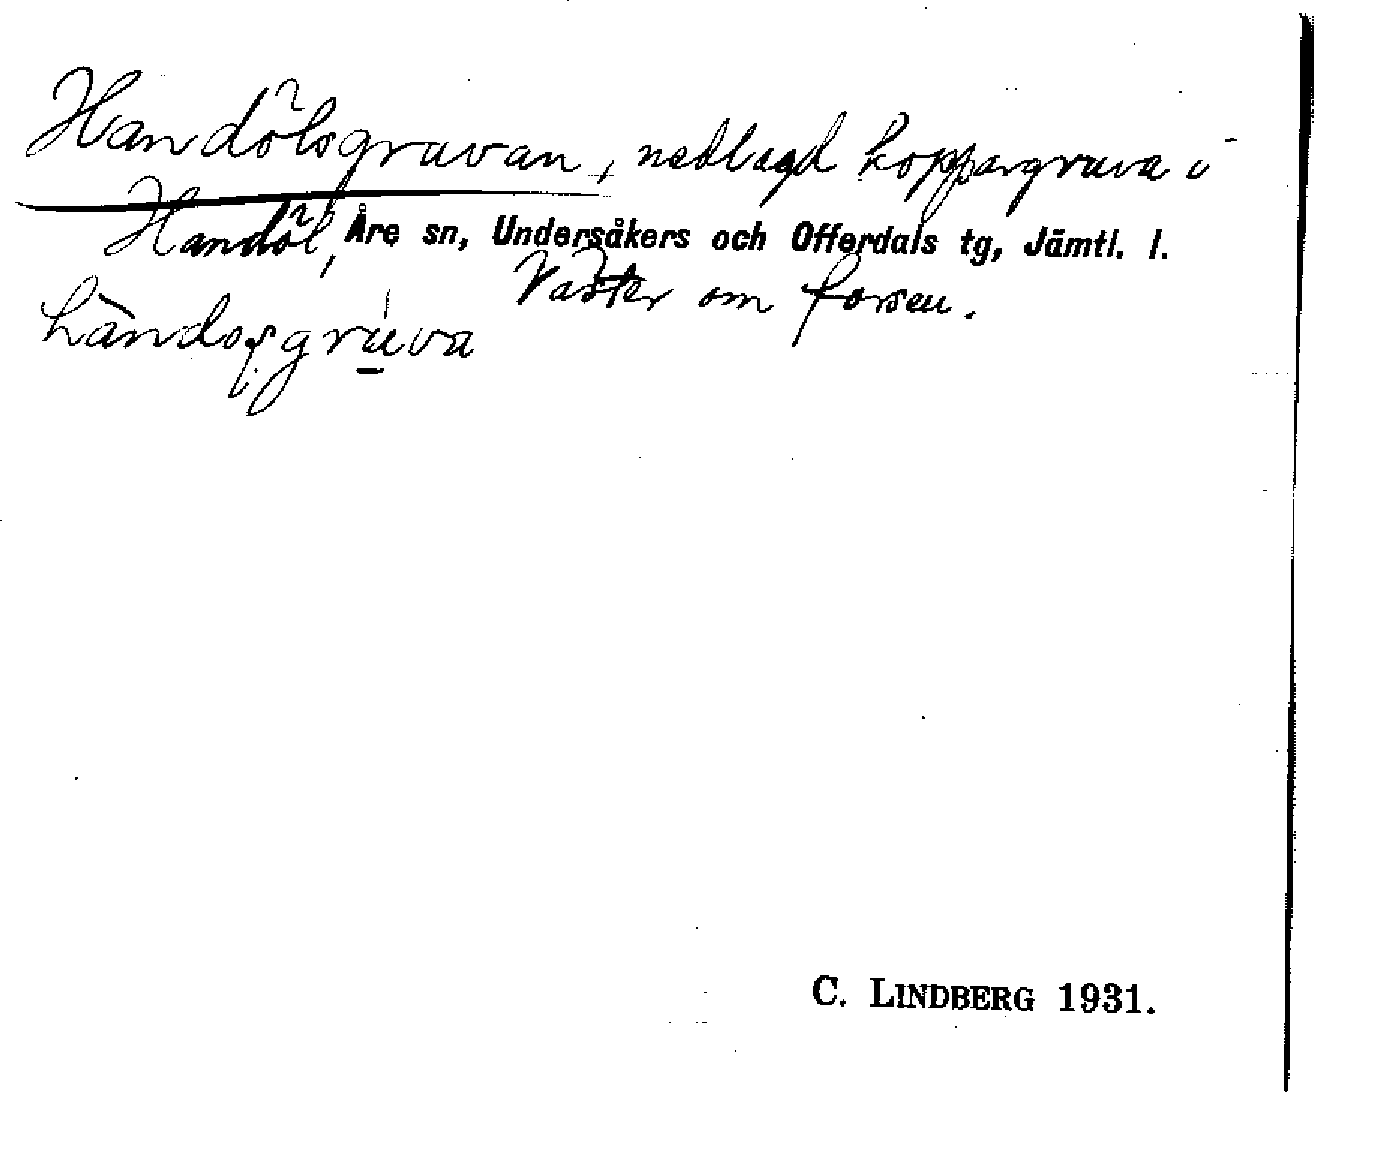 Handölsgruvan, nedlagd koppargruva i
Handöl, Åre sn, Undersåkers och Offerdals tg, Jämtl. l.
Väster om forsen.
C. LINDBERG 1931.